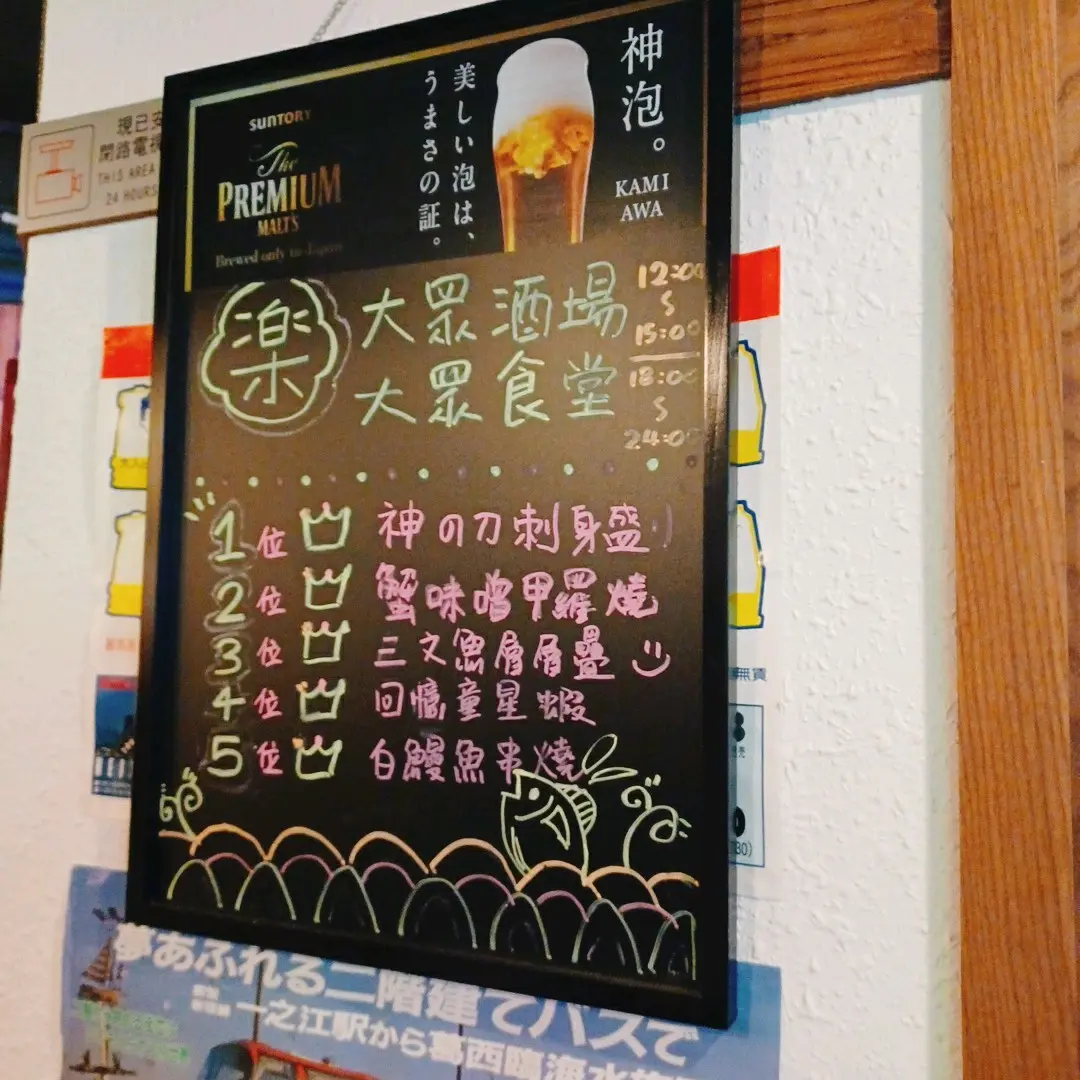 現已安
閉路電視
THIS AREA
24 HOURS
SUNTORY
The
PREMIUM
MALT'S
Brewed only in Japan
美しい泡は、
うまさの証。
神泡。
KAMI
AWA
楽
大眾酒場
大眾食堂
12:00
15:00
18:00
24:00
1位 神の刀刺身盛
2位 蟹味噌甲羅燒
3位 三文魚層層疊
4位 回憶童星蝦
5位 白鰻魚串燒
夢あふれる二階建てバスで
一之江駅から葛西臨海水族